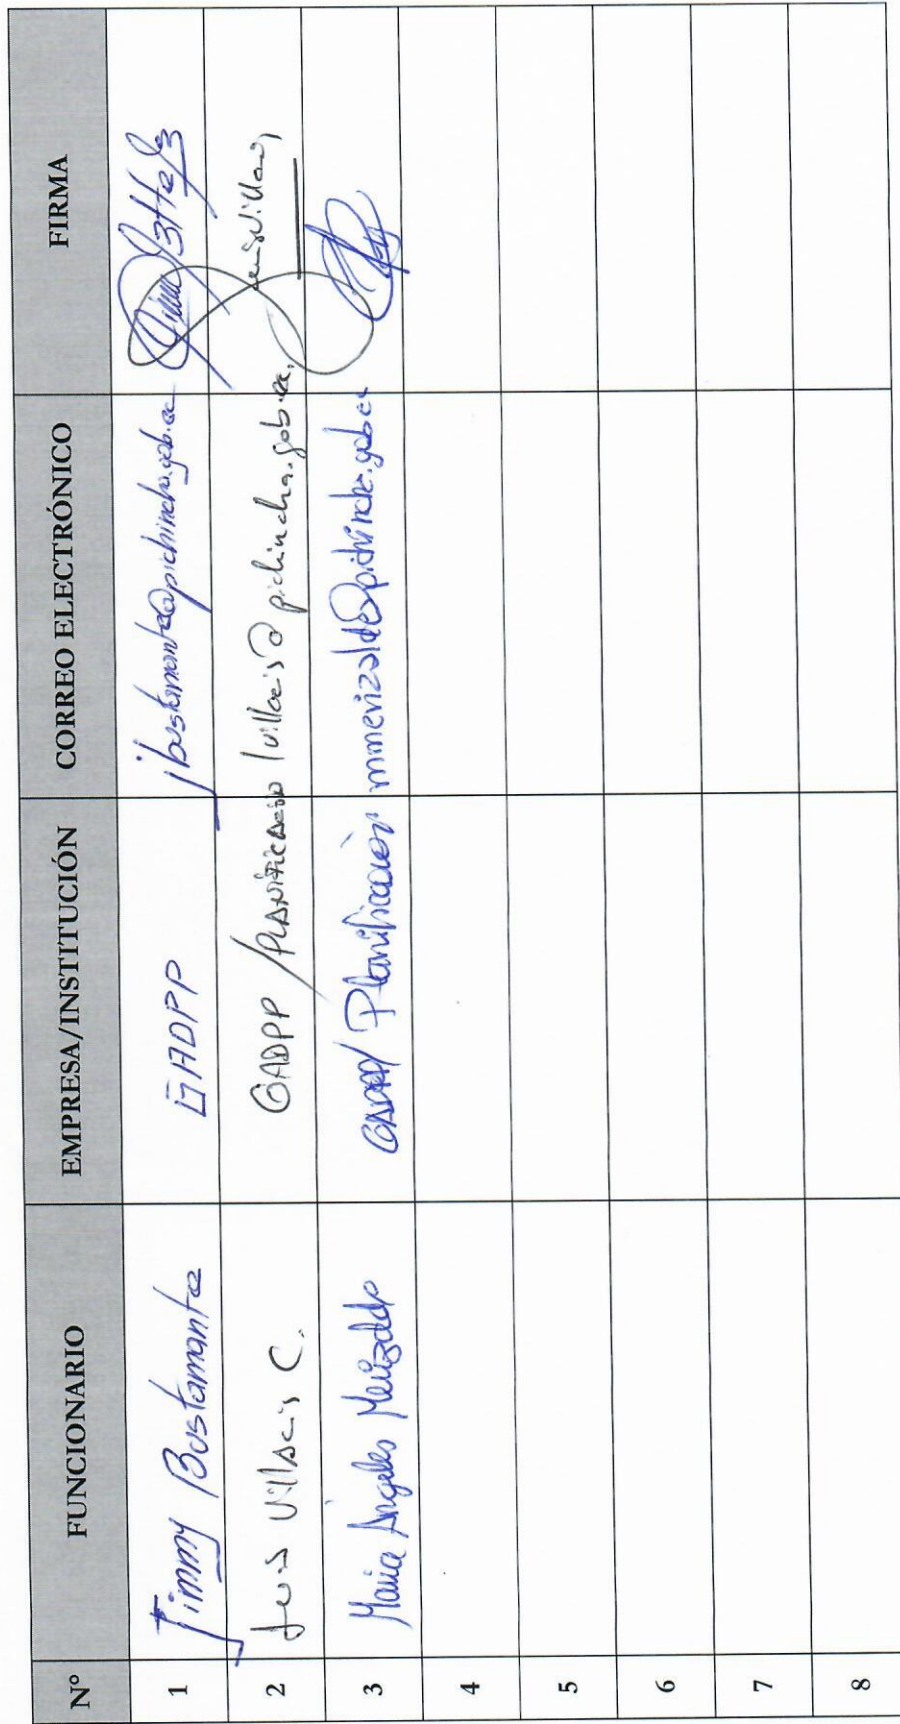 N° FUNCIONARIO EMPRESA/INSTITUCIÓN CORREO ELECTRÓNICO FIRMA
1 Jimmy Bustamante GADPP jbustamante@pichincha.gob.ec
2 Luis Villacis C. GADPP / PLANIFICACIÓN lvillacis@pichincha.gob.ec
3 Maria Angeles Merizalde GADPP/ Planificación mmerizalde@pichincha.gob.ec
4
5
6
7
8